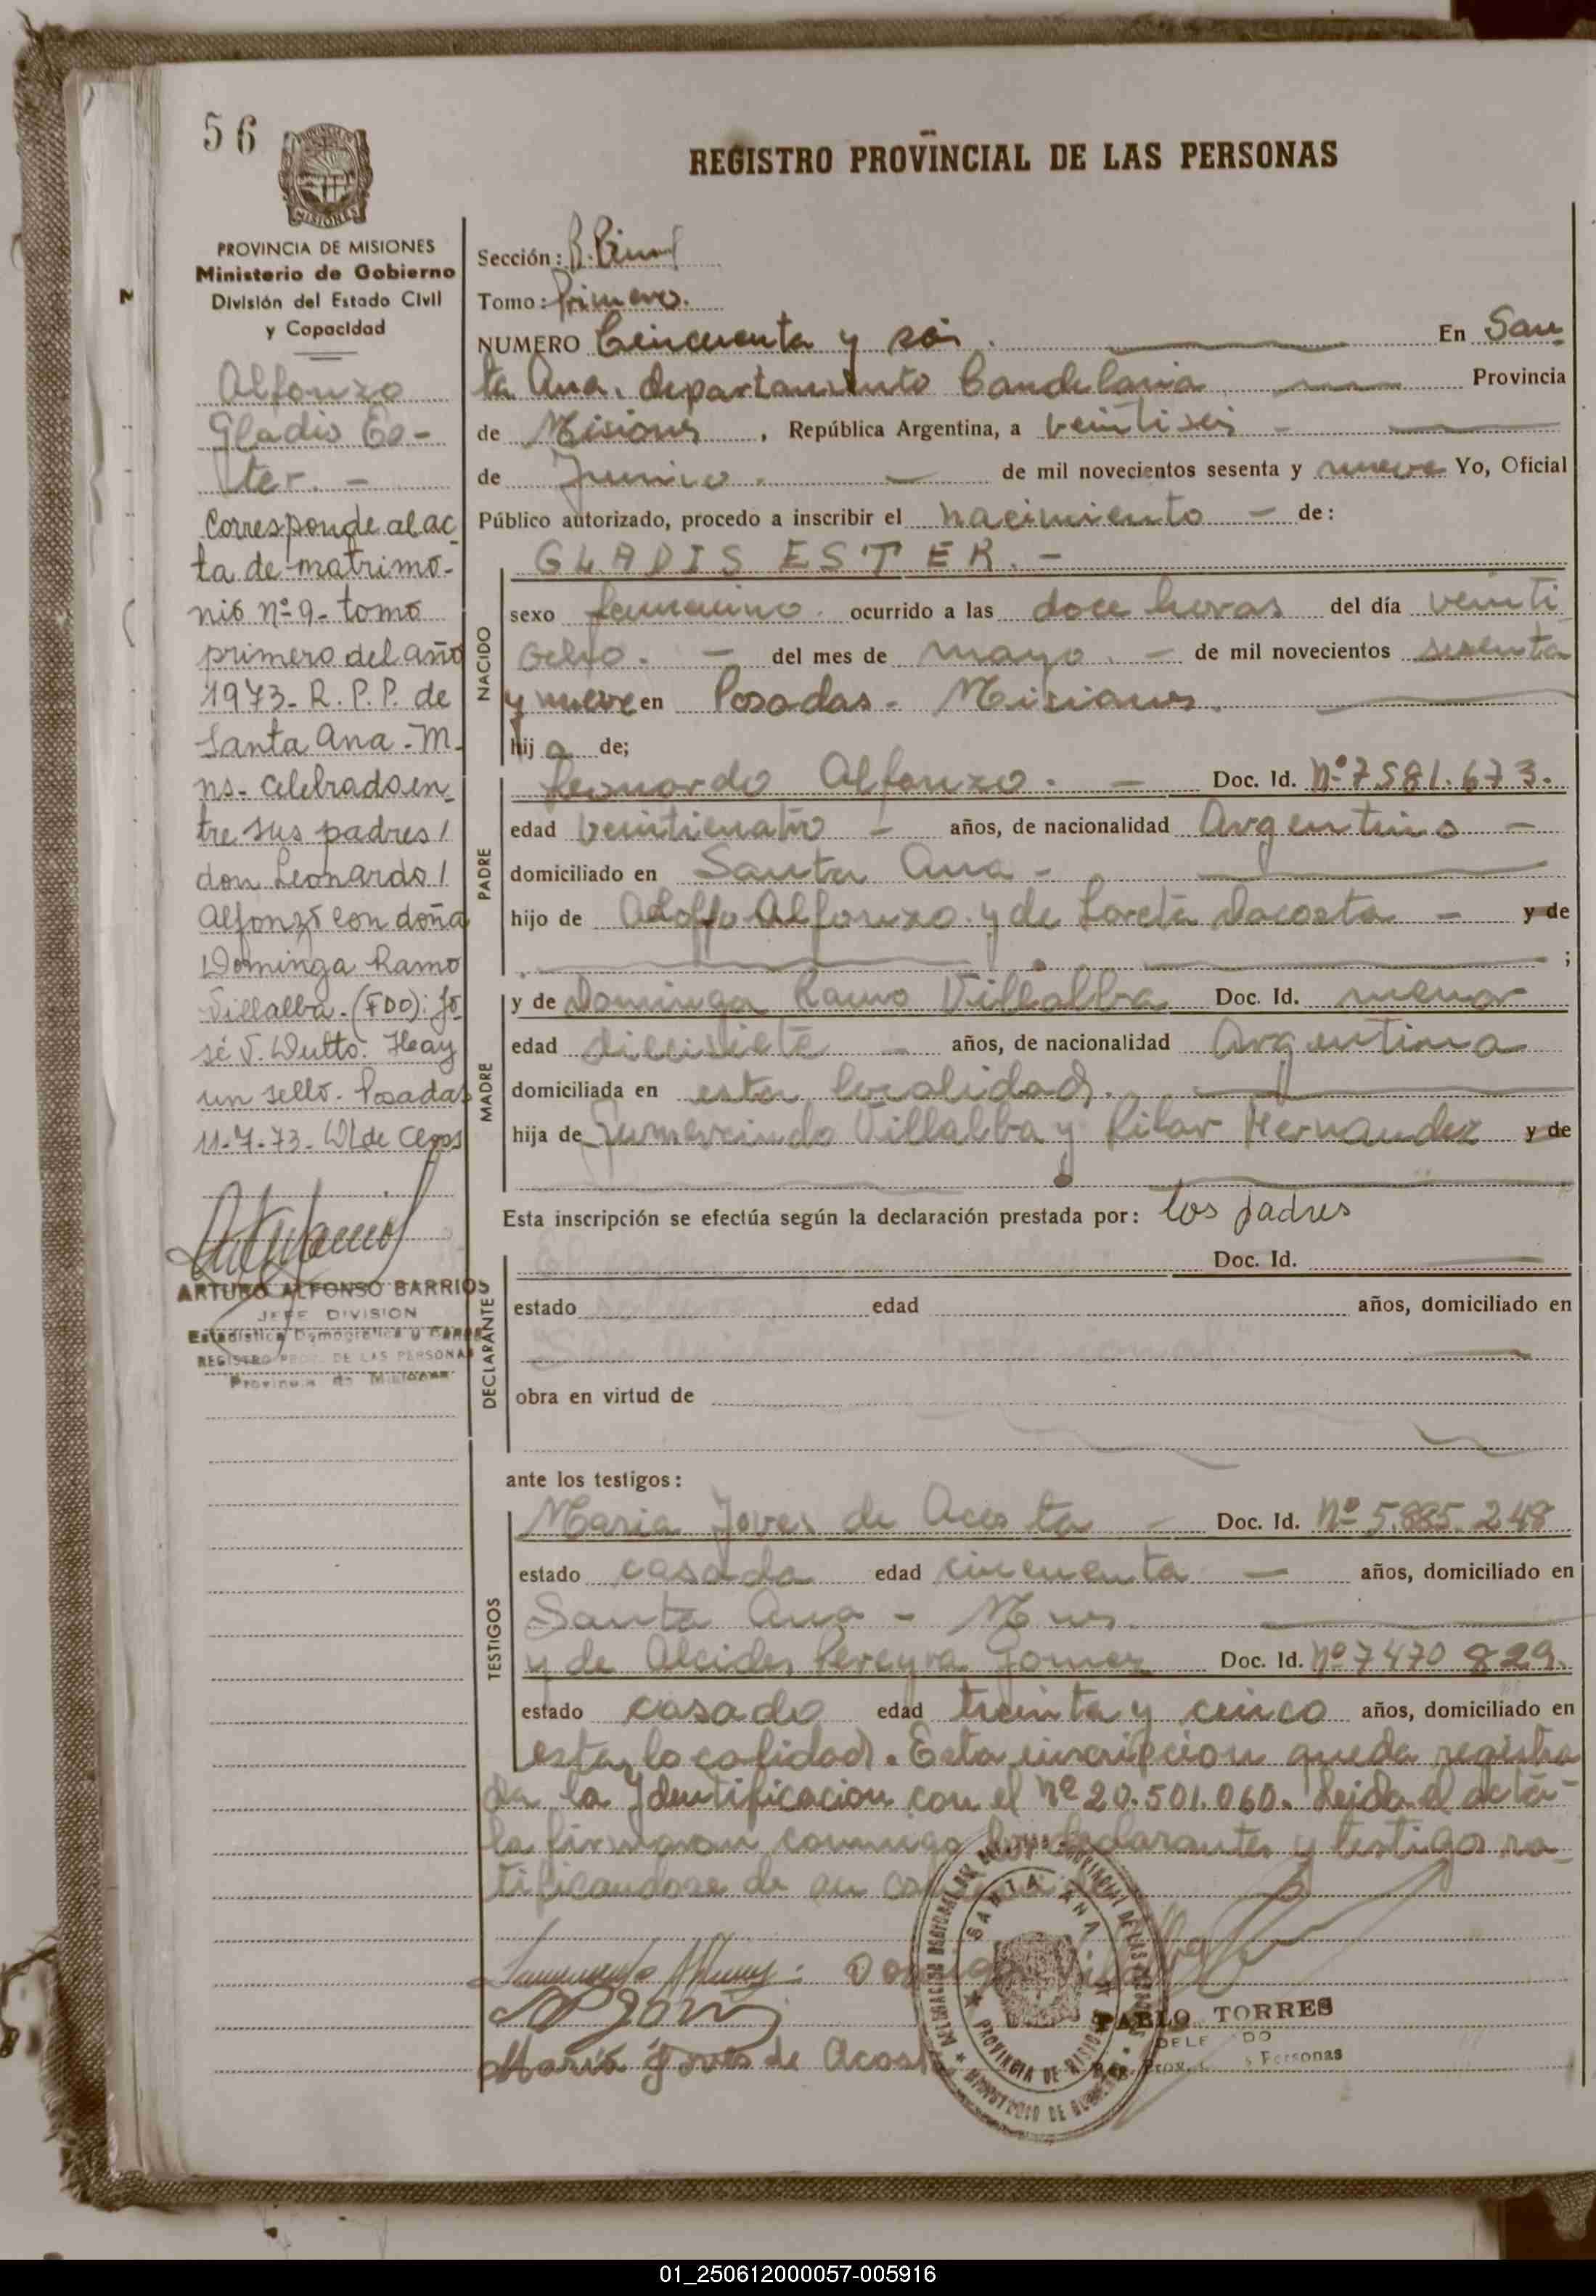 56
REGISTRO PROVINCIAL DE LAS PERSONAS
MISIONES
PROVINCIA DE MISIONES
Ministerio de Gobierno
División del Estado Civil
y Capacidad
Alfonzo
Gladis Es-
ter. -
Corresponde al ac-
ta de matrimo-
nio nº 9 - tomo
primero del año
1973 - R. P. P. de
Santa Ana - M
ns - celebrado en-
tre sus padres /
don Leonardo /
Alfonzo con doña
Dominga Ramo
Villalba - (FDO): Jo
sé V. Dutto. Hay
un sello - Posadas
11-7-73 -
ARTURO ALFONSO BARRIOS
JEFE DIVISION
Estadística Demográfica y
REGISTRO PROV. DE LAS PERSONAS
Provincia de Misiones
Sección:
Tomo: Primero.
NUMERO Cincuenta y seis. En San
ta Ana, departamento Candelaria Provincia
de Misiones, República Argentina, a veintiseis
de Junio. de mil novecientos sesenta y nueve Yo, Oficial
Público autorizado, procedo a inscribir el nacimiento - de:
GLADIS ESTER. -
NACIDO
sexo femenino. ocurrido a las doce horas del día veinti
ocho. - del mes de mayo. - de mil novecientos sesenta
y nueve en Posadas - Misiones.
hij a de;
PADRE
Leonardo Alfonzo. - Doc. Id. Nº 7581.673.
edad veinticuatro - años, de nacionalidad Argentino -
domiciliado en Santa Ana -
hijo de Adolfo Alfonzo y de Loreta Dacosta - y de
;
MADRE
y de Dominga Ramo Villalba Doc. Id. menor
edad diecisiete - años, de nacionalidad Argentina
domiciliada en esta localidad.
hija de Gumercindo Villalba y Pilar Hernandez y de
Esta inscripción se efectúa según la declaración prestada por: los padres
DECLARANTE
Doc. Id.
estado edad años, domiciliado en
obra en virtud de
ante los testigos:
TESTIGOS
Maria Joves de Acosta - Doc. Id. Nº 5.885.248
estado casada edad cincuenta - años, domiciliado en
Santa Ana - Mnes.
y de Alcides Pereyra Gomez Doc. Id. Nº 7470 829.
estado casado edad treinta y cinco años, domiciliado en
esta localidad. Esta inscripcion queda registra
da la Identificacion con el Nº 20.501.060. Leida el acta
la firmaron conmigo los declarantes y testigos ra-
tificandose de su contenido
SANTA ANA
PROVINCIA DE MISIONES
PABLO TORRES
Maria Joves de Acosta
01_250612000057-005916